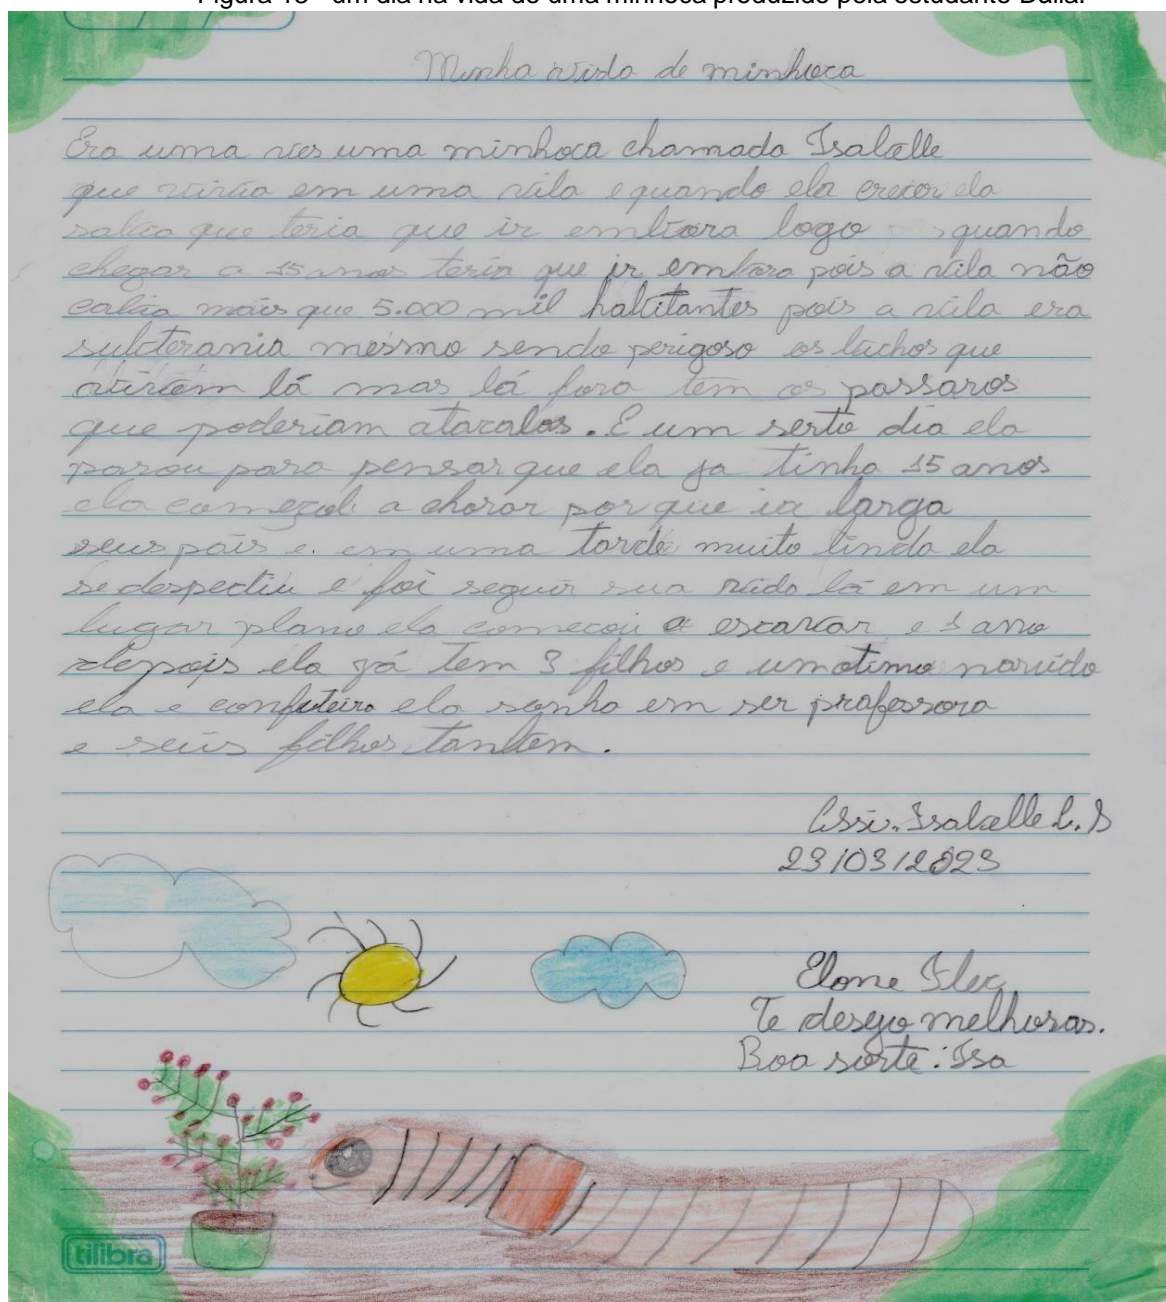 Figura 18 - um dia na vida de uma minhoca produzido pela estudante Dália.
Minha vida de minhoca
Era uma ves uma minhoca chamada Isabelle
que vivia em uma vila e quando ela crecer ela
sabia que teria que ir embora logo quando
chegar a 15 anos teria que ir embora pois a vila não
cabia mais que 5.000 mil habitantes pois a vila era
subterania mesmo sendo perigoso os bichos que
viviam lá mas lá fora tem os passaros
que poderiam atacalos. E um serto dia ela
parou para pensar que ela ja tinha 15 anos
ela começol a chorar por que ia larga
seus pais e em uma tarde muito linda ela
se despediu e foi seguir sua vida lá em um
lugar plano ela começou a escavar e 1 ano
depois ela já tem 3 filhos e um otimo marido
ela e confeteira ela sonha em ser professora
e seus filhos tanbem.
Assi. Isabelle L. S
23/03/2023
Te desejo melhoras.
Boa sorte: Isa
tilibra